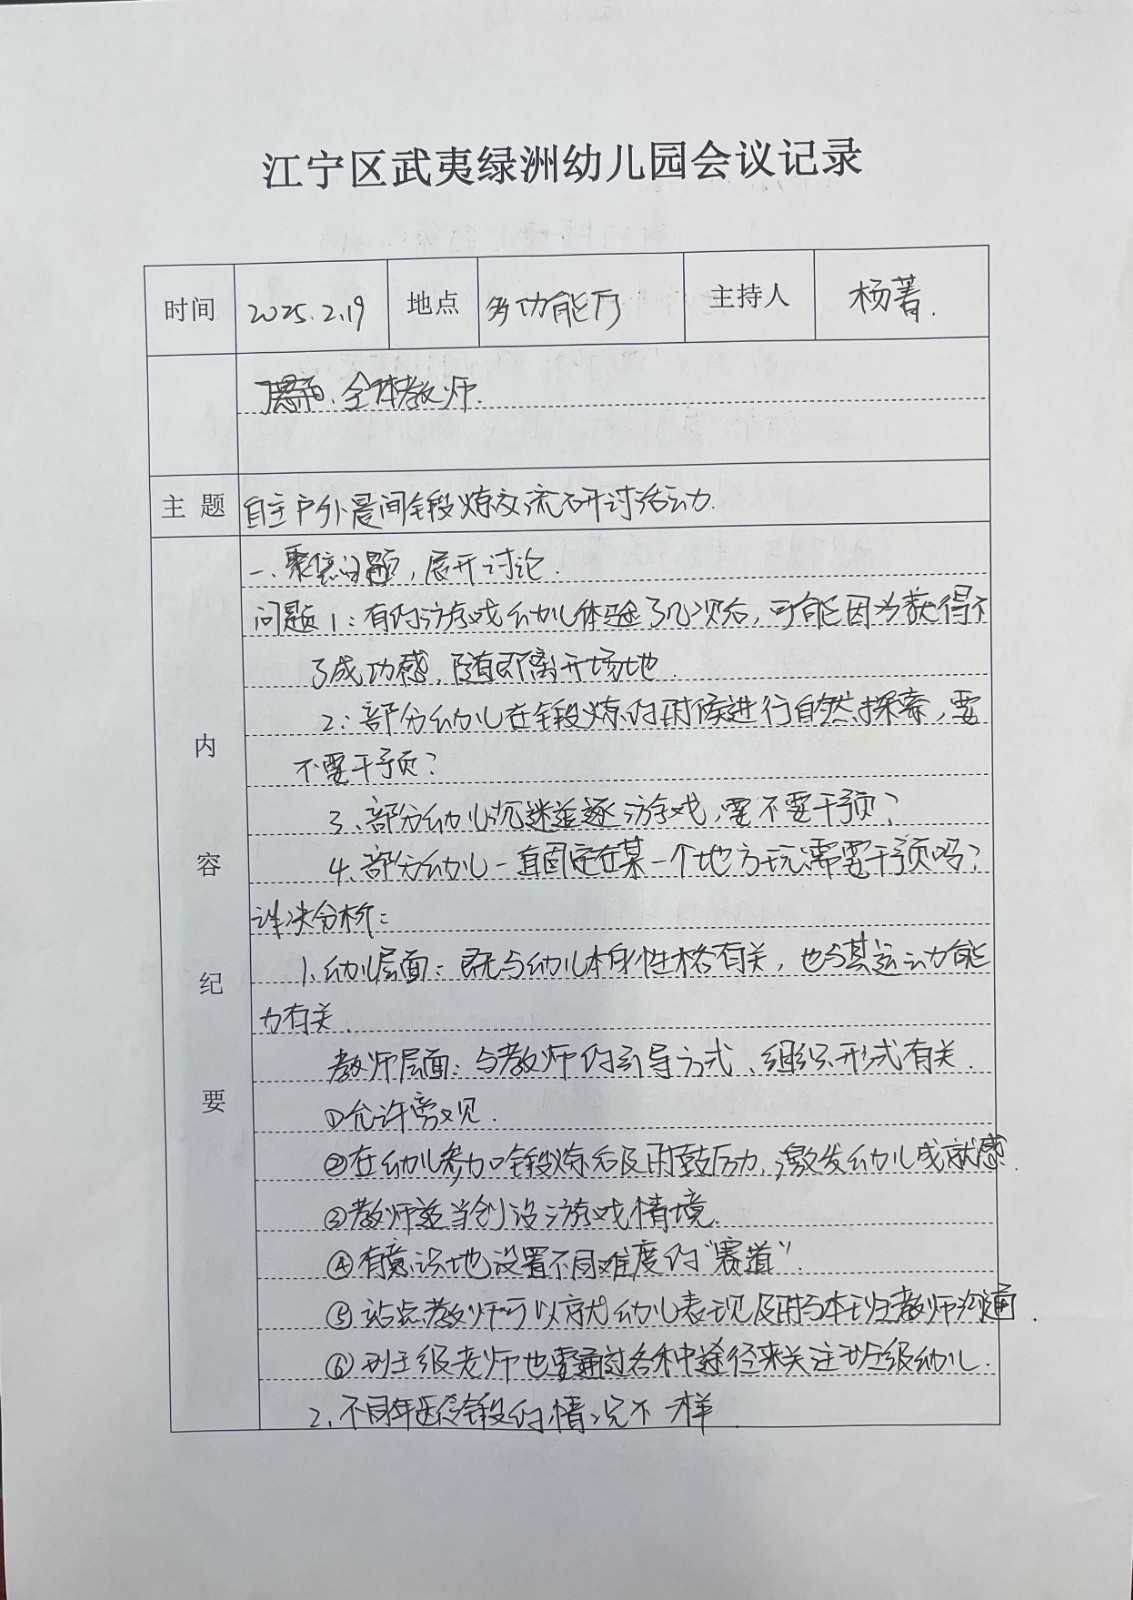 江宁区武夷绿洲幼儿园会议记录
时间 2025.2.19 地点 多功能厅 主持人 杨菁.
全体教师.
主题 自主户外晨间锻炼交流研讨活动.
内容纪要
一、聚焦问题，展开讨论.
问题1：有的游戏幼儿体验了几次后，可能因为获得不
了成功感，随即离开场地.
2：部分幼儿在锻炼的时候进行自然探索，要
不要干预？
3、部分幼儿沉迷追逐游戏，要不要干预？
4、部分幼儿一直固定在某一个地方玩需要干预吗？
详决分析：
1、幼儿层面：既与幼儿本身性格有关，也与其运动能
力有关.
教师层面：与教师的引导方式、组织形式有关.
①允许旁观.
②在幼儿参加锻炼后及时鼓励，激发幼儿成就感.
③教师适当创设游戏情境.
④有意识地设置不同难度的“赛道”.
⑤站点教师可以就幼儿表现及时与本班教师沟通.
⑥班级老师也要通过各种途径来关注班级幼儿.
2、不同年龄段的情况不一样.